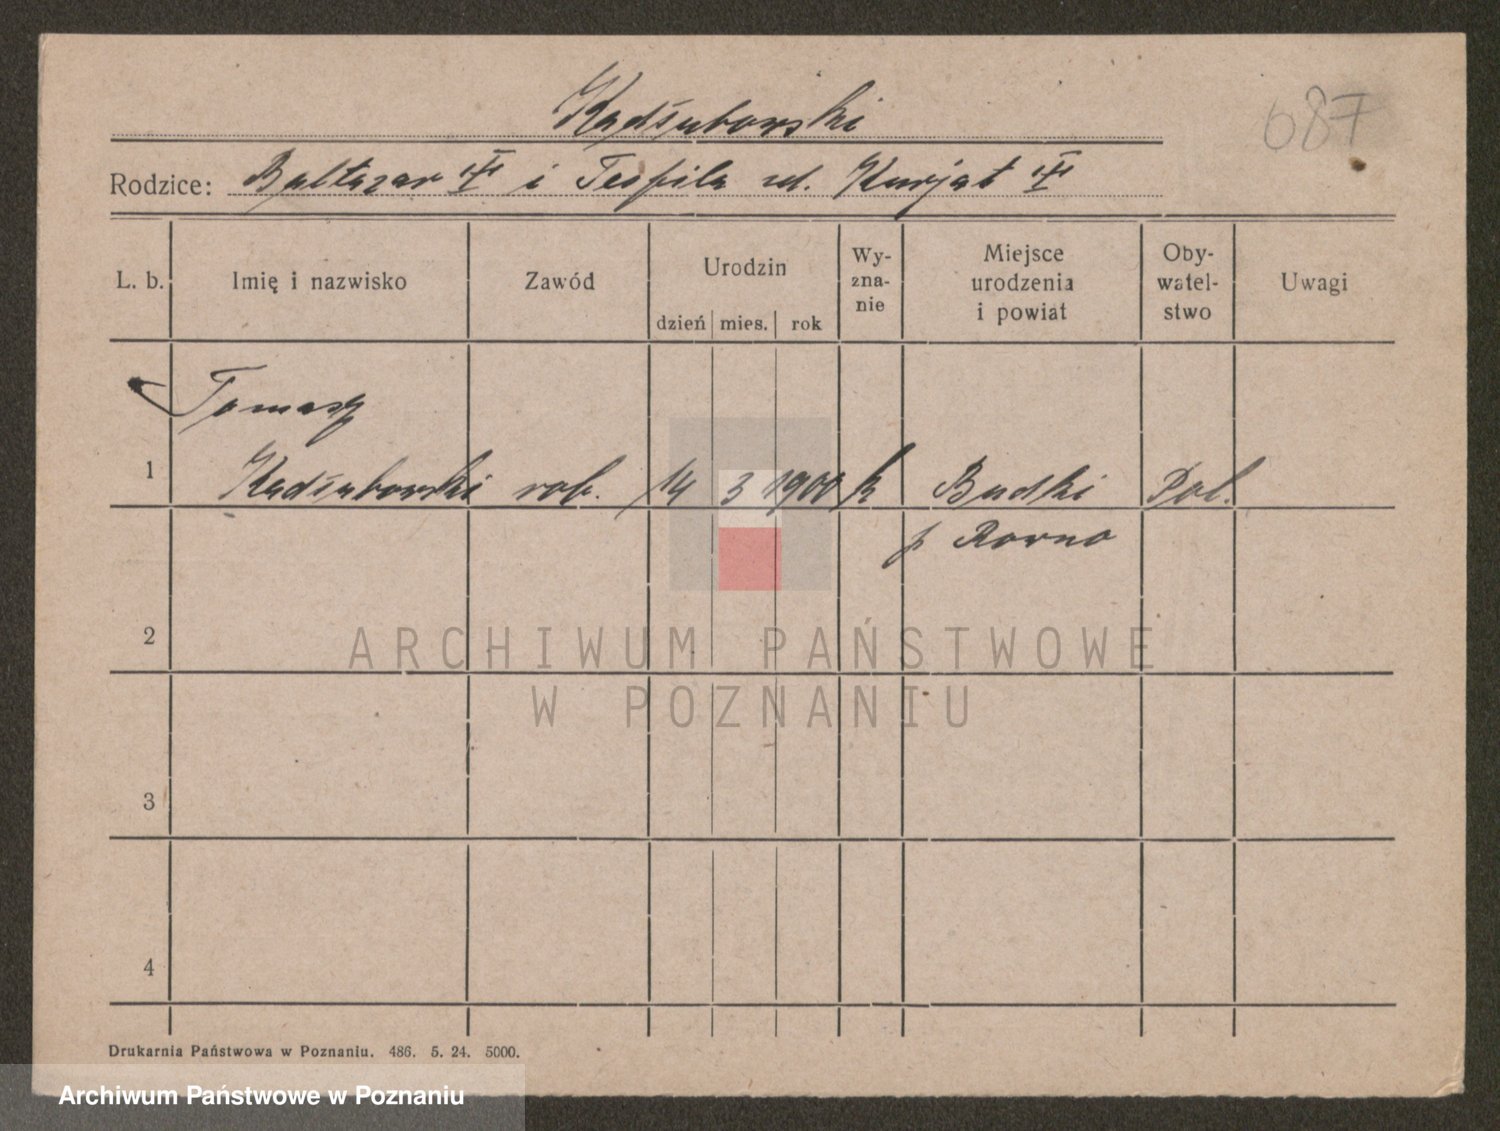 Kadłubowski
687
Rodzice: Baltazar i Teofila ul. Kurjat
L. b. Imię i nazwisko Zawód Urodzin dzień mies. rok Wy-zna-nie Miejsce urodzenia i powiat Oby-watel-stwo Uwagi
Tomasz
1 Kadłubowski rob. 14 3 1900 k Budki Pol.
p Rowno
2
ARCHIWUM PAŃSTWOWE
W POZNANIU
3
4
Drukarnia Państwowa w Poznaniu. 486. 5. 24. 5000.
Archiwum Państwowe w Poznaniu